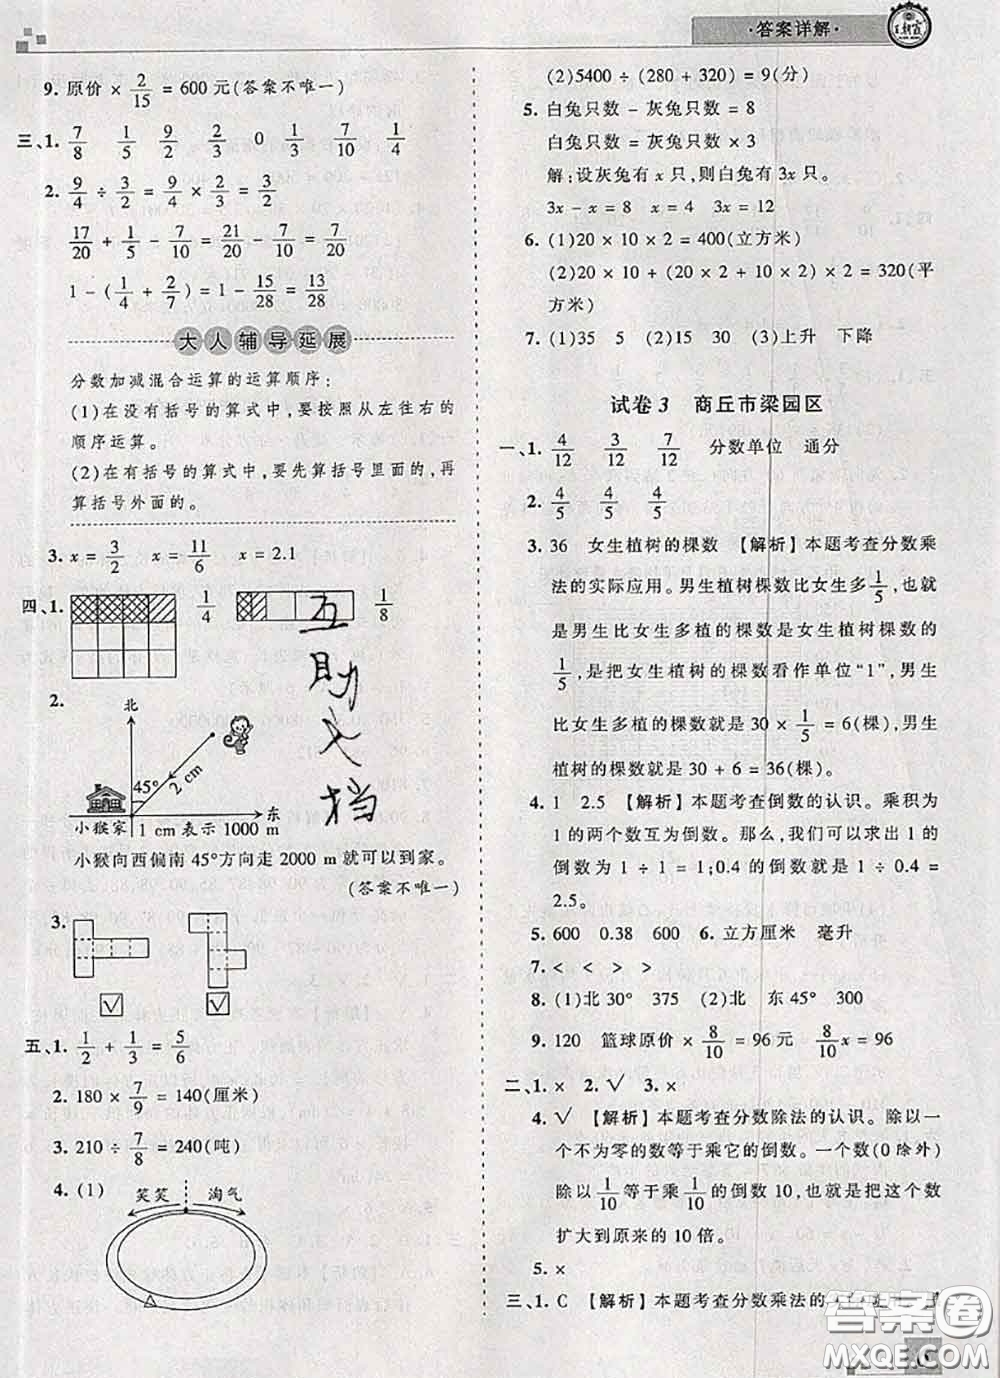 ·答案详解·
王朝霞
9. 原价 × 2/15 = 600 元(答案不唯一)
三、1. 7/8 1/5 9/2 2/3 0 1/3 7/10 1/4
2. 9/4 ÷ 3/2 = 9/4 × 2/3 = 3/2
17/20 + 1/5 - 7/10 = 21/20 - 7/10 = 7/20
1 - (1/4 + 2/7) = 1 - 15/28 = 13/28
大人辅导延展
分数加减混合运算的运算顺序:
(1)在没有括号的算式中,要按照从左往右的
顺序运算。
(2)在有括号的算式中,要先算括号里面的,再
算括号外面的。
3. x = 3/2 x = 11/6 x = 2.1
四、1. 1/4 1/8
2. 北
45° 2 cm
东
小猴家 1 cm 表示 1000 m
小猴向西偏南 45°方向走 2000 m 就可以到家。
(答案不唯一)
3. ☑ ☑
五、1. 1/2 + 1/3 = 5/6
2. 180 × 7/9 = 140(厘米)
3. 210 ÷ 7/8 = 240(吨)
4. (1) 笑笑 淘气
互
助
文
档
(2)5400 ÷ (280 + 320) = 9(分)
5. 白兔只数 - 灰兔只数 = 8
白兔只数 = 灰兔只数 × 3
解:设灰兔有 x 只,则白兔有 3x 只。
3x - x = 8 x = 4 3x = 12
6. (1)20 × 10 × 2 = 400(立方米)
(2)20 × 10 + (20 × 2 + 10 × 2) × 2 = 320(平
方米)
7. (1)35 5 (2)15 30 (3)上升 下降
试卷 3 商丘市梁园区
一、1. 4/12 3/12 7/12 分数单位 通分
2. 4/5 4/5 4/5
3. 36 女生植树的棵数 【解析】本题考查分数乘
法的实际应用。男生植树棵数比女生多 1/5,也就
是男生比女生多植的棵数是女生植树棵数的
1/5,是把女生植树的棵数看作单位“1”,男生
比女生多植的棵数是 30 × 1/5 = 6(棵),男生
植树的棵数就是 30 + 6 = 36(棵)。
4. 1 2.5 【解析】本题考查倒数的认识。乘积为
1 的两个数互为倒数。那么,我们可以求出 1 的
倒数为 1 ÷ 1 = 1;0.4 的倒数就是 1 ÷ 0.4 =
2.5。
5. 600 0.38 600 6. 立方厘米 毫升
7. < < > >
8. (1)北 30° 375 (2)北 东 45° 300
9. 120 篮球原价 × 8/10 = 96 元 8/10 x = 96
二、1. × 2. √ 3. ×
4. √ 【解析】本题考查分数除法的认识。除以一
个不为零的数等于乘它的倒数。一个数(0 除外)
除以 1/10 等于乘 1/10 的倒数 10,也就是把这个数
扩大到原来的 10 倍。
5. ×
三、1. C 【解析】本题考查分数乘法的
答案圈
MXQE.COM